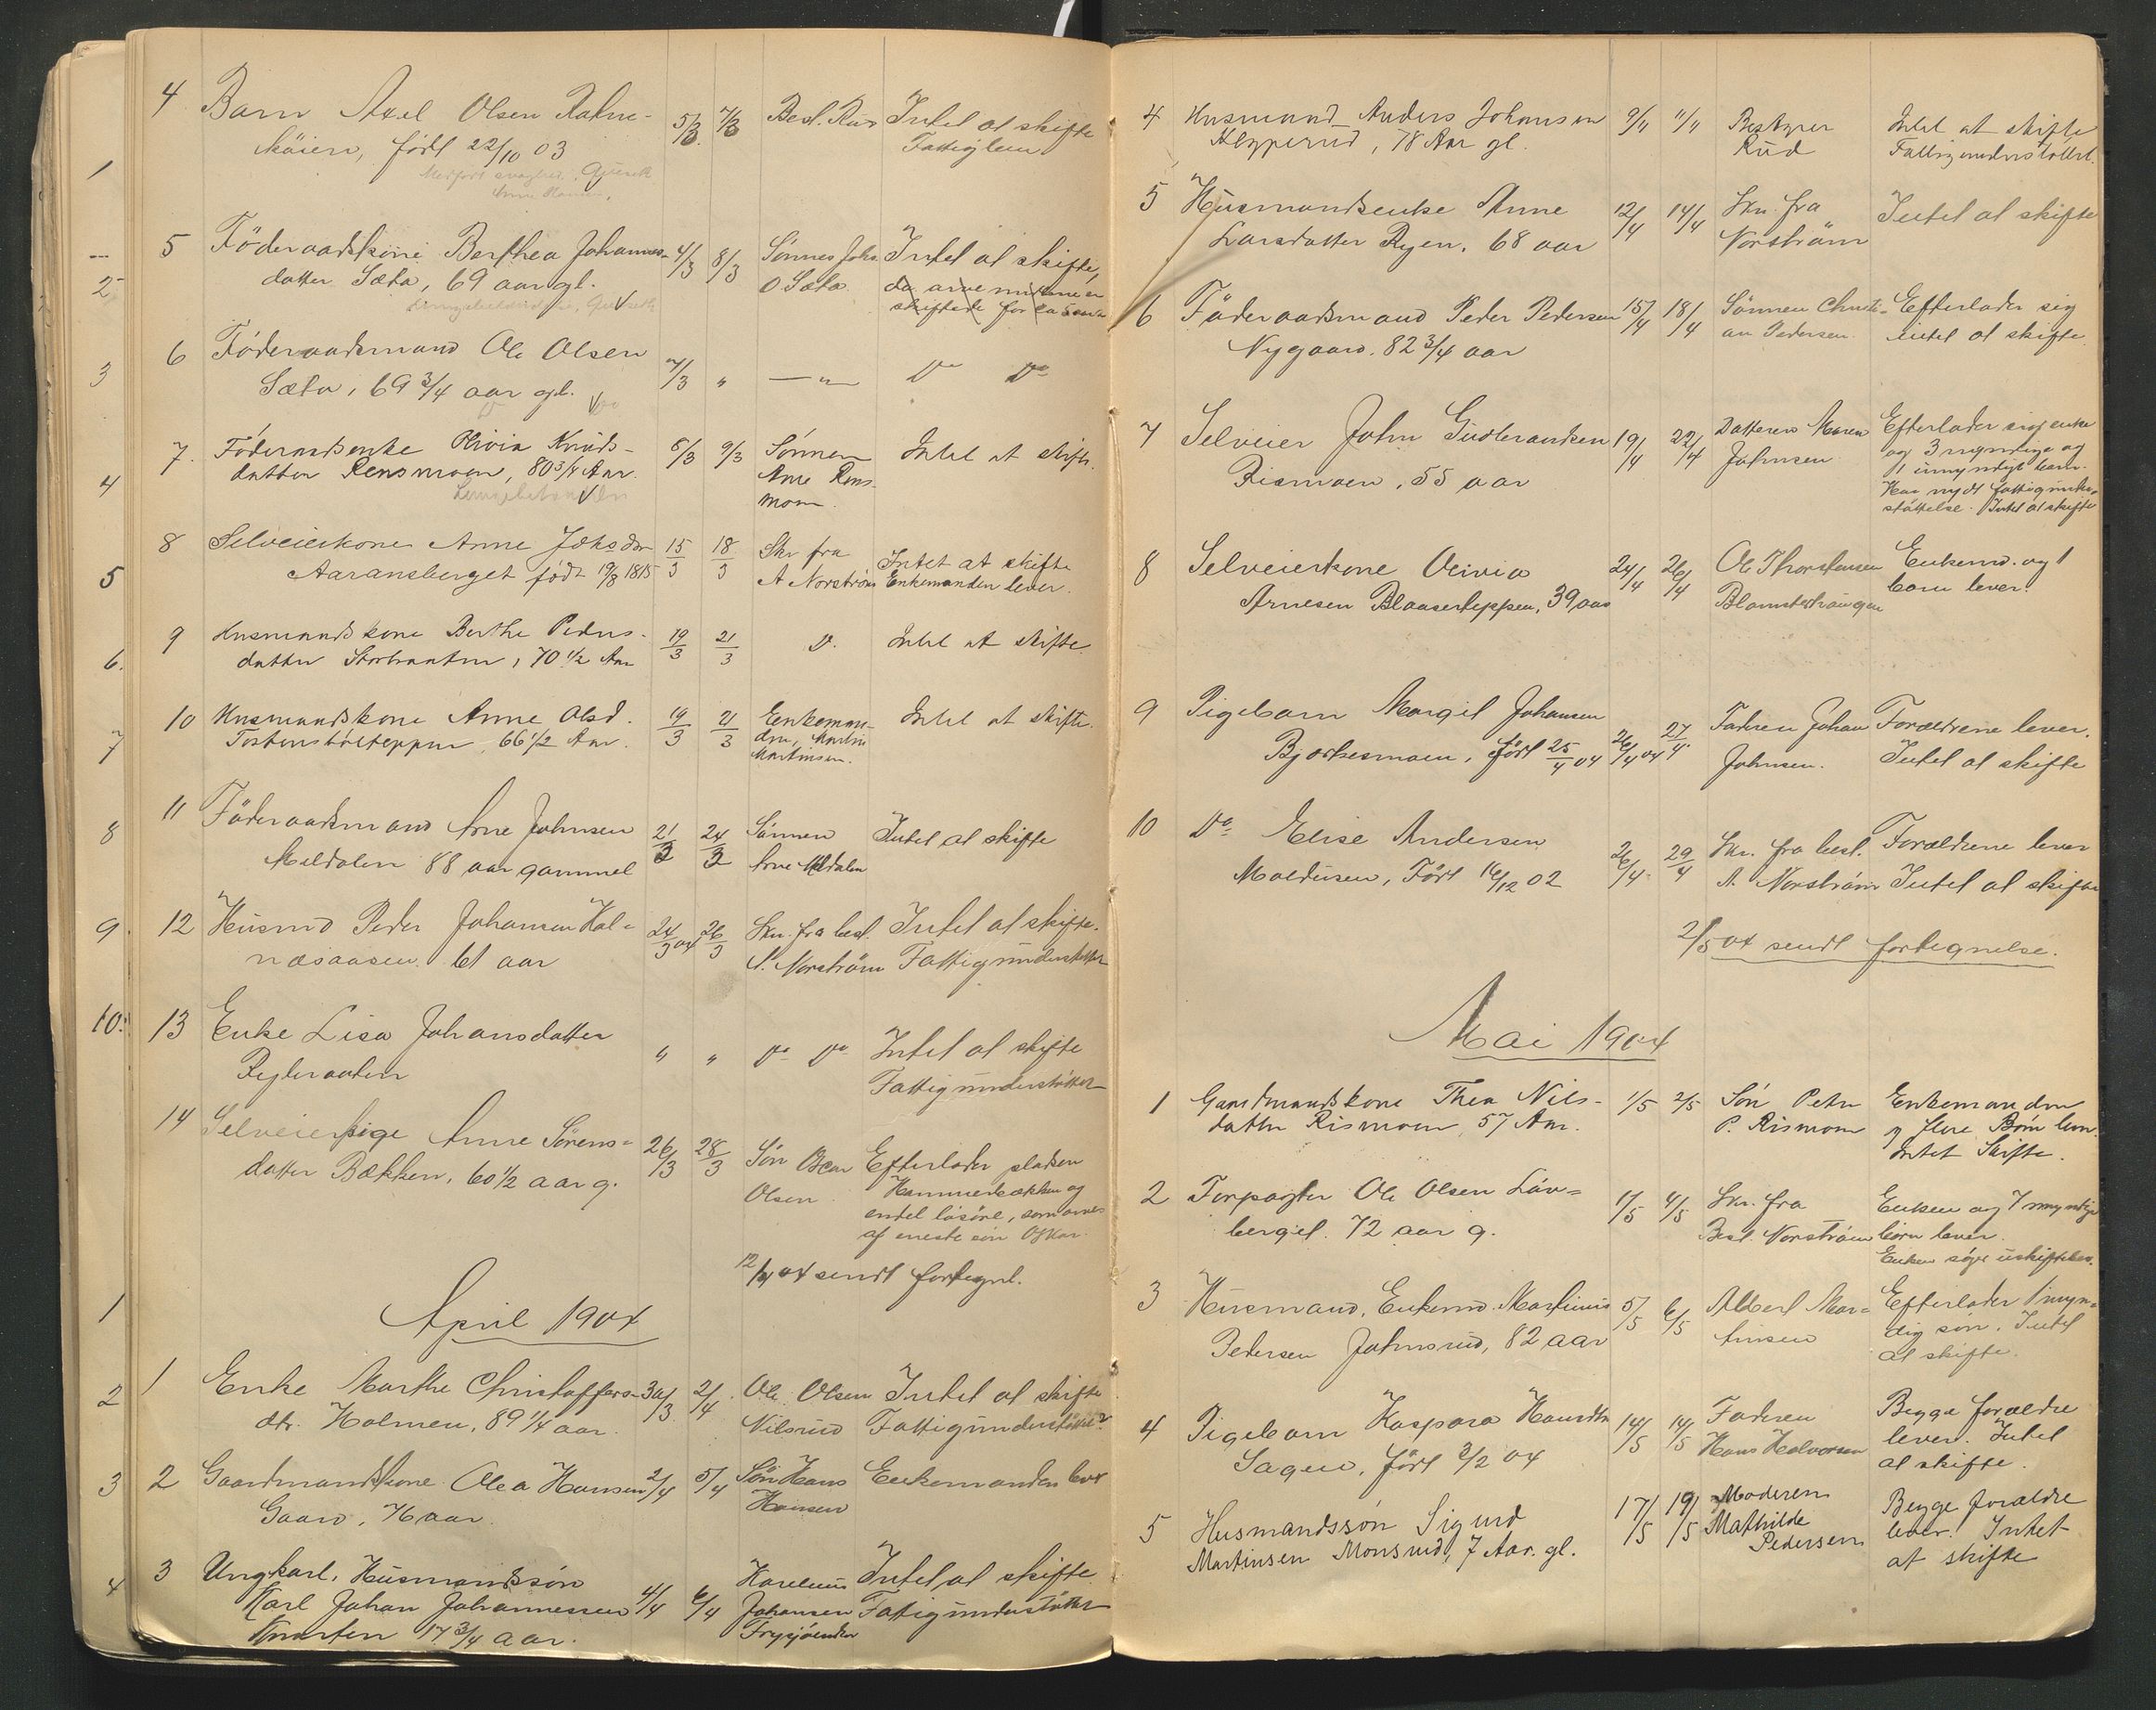 4 Barn Axel Olsen Rahne- 5/3 7/3 Best. Rud Intet at skifte
köien, födt 22/10 03 Fattiglem
5 Föderaadskone Berthea Johannes- 4/3 8/3 Sönnes Johs. Intet at skifte,
datter Sæta, 69 aar gl. O Sæta da arvemidlerne er
skiftede for
6 Föderaadsmand Ole Olsen
Sæta, 69 3/4 aar gl. 7/3 " — " — Do Do
7. Föderaadsenke Olivia Knuds- 6/3 9/3 Sönnen Intet at skifte.
datter Rensmoen, 80 3/4 Aar. Arne Rens-
moen.
8 Selveierkone Anne Joksdtr 15/3 18/3 Skr fra Intet at skifte
Aaransberget födt 19/8 1815 A Norström Enkemanden lever.
9 Husmandskone Berthe Peders- 19/3 21/3 Do. Intet at skifte.
datter Storbraaten, 70 1/2 Aar
10 Husmandskone Anne Olsd. 19/3 21/3 Enkeman- Intet at skifte.
66 1/2 Aar. den, Martin
Martinsen.
11 Föderaadsmand Arne Johnsen 21/3 24/3 Sönnen Intet at skifte
Meldalen 88 aar gammel Arne Meldalen
12 Husmd Peder Johansen Kal- 24/3 04 26/3 Skr. fra best. Intet at skifte.
næsaasen. 61 aar A. Norström Fattigunderstöttet
13 Enke Lisa Johansdatter " " Do Do Intet at skifte
Regleraaten Fattigunderstöttet
14 Selveierpige Anne Sörens- 26/3 28/3 Sön Oscar Efterlader pladsen
datter Bækken, 60 1/2 aar g. Olsen Hammerbækken og
endel lösöre, som arves
af eneste sön Oskar.
12/4 04 sendt fortegnl.
April 1904
1 Enke Marthe Christoffers- 30/3 2/4 Ole Olsen Intet at skifte
dtr. Holmen, 89 1/4 aar. Nilsrud Fattigunderstöttet
2 Gaardmandskone Olea Hansen 2/4 5/4 Sön Hans Enkemanden lever
Gaard, 76 aar. Hansen
3 Ungkarl, Husmandssön Karelius Intet at skifte
Karl Johan Johannessen 4/4 6/4 Johansen Fattigunderstöttet
17 3/4 aar.
4 Husmand Anders Johansen 9/4 11/4 Bestyrer Intet at skifte
Klypperud, 78 Aar gl. Rud Fattigunderstöttet.
5 Husmandsenke Anne 12/4 14/4 Skr. fra Intet at skifte
Larsdatter Ryen, 68 aar Norström
6 Föderaadsmand Peder Pedersen 15/4 18/4 Sönnen Christi- Efterlader sig
Nygaard. 82 3/4 aar an Pedersen. intet at skifte.
7 Selveier John Gudbrandsen 19/4 22/4 Datteren Maren Efterlader sig enke
Rismoen, 55 aar Johnsen og 3 myndige og
1 umyndigt barn.
Har nydt fattigunder-
støttelse. Intet at skifte
8 Selveierkone Olivia 24/4 26/4 Ole Thorstensen Enkemd. og 1
Arnesen Blaaserteppen, 39 aar barn lever.
9 Pigebarn Margit Johansen 26/4 04 27/4. Faderen Johan Forældrene lever.
Bjorkesmoen, født 25/4 04 Johnsen. Intet at skifte
10 Do Elise Andersen 26/4. 29/4 Skr. fra best. Forældrene lever
Moldusen, Født 16/12 02 A. Norström Intet at skifte
2/5 04 sendt fortegnelse.
Mai 1904
1 Gaardmandskone Thea Nils- 1/5 2/5 Sön Peter Enkemanden
datter Rismoen, 57 Aar. P. Rismoen og flere Børn lever.
Intet Skifte.
2 Forpagter Ole Olsen Löv- 1/5 4/5 Skr. fra Enken og 7 myndige
berget. 72 aar g. Best. Norström börn lever.
Enken søger uskiftebev.
3 Husmand, Enkemd. Martinus 5/5 6/5 Albert Mar- Efterlader 1 myn-
Pedersen Johnsrud, 82 aar tinsen dig sön. Intet
at skifte.
4 Pigebarn Kaspara Hansdtr 14/5 14/5 Faderen Begge forældre
Sagen, født 3/2 04 Hans Halvorsen lever. Intet
at skifte.
5 Husmandssön Sigurd 17/5 19/5 Moderen Begge forældre
Martinsen Monsrud, 7 Aar. gl. Mathilde lever. Intet
Pedersen at skifte